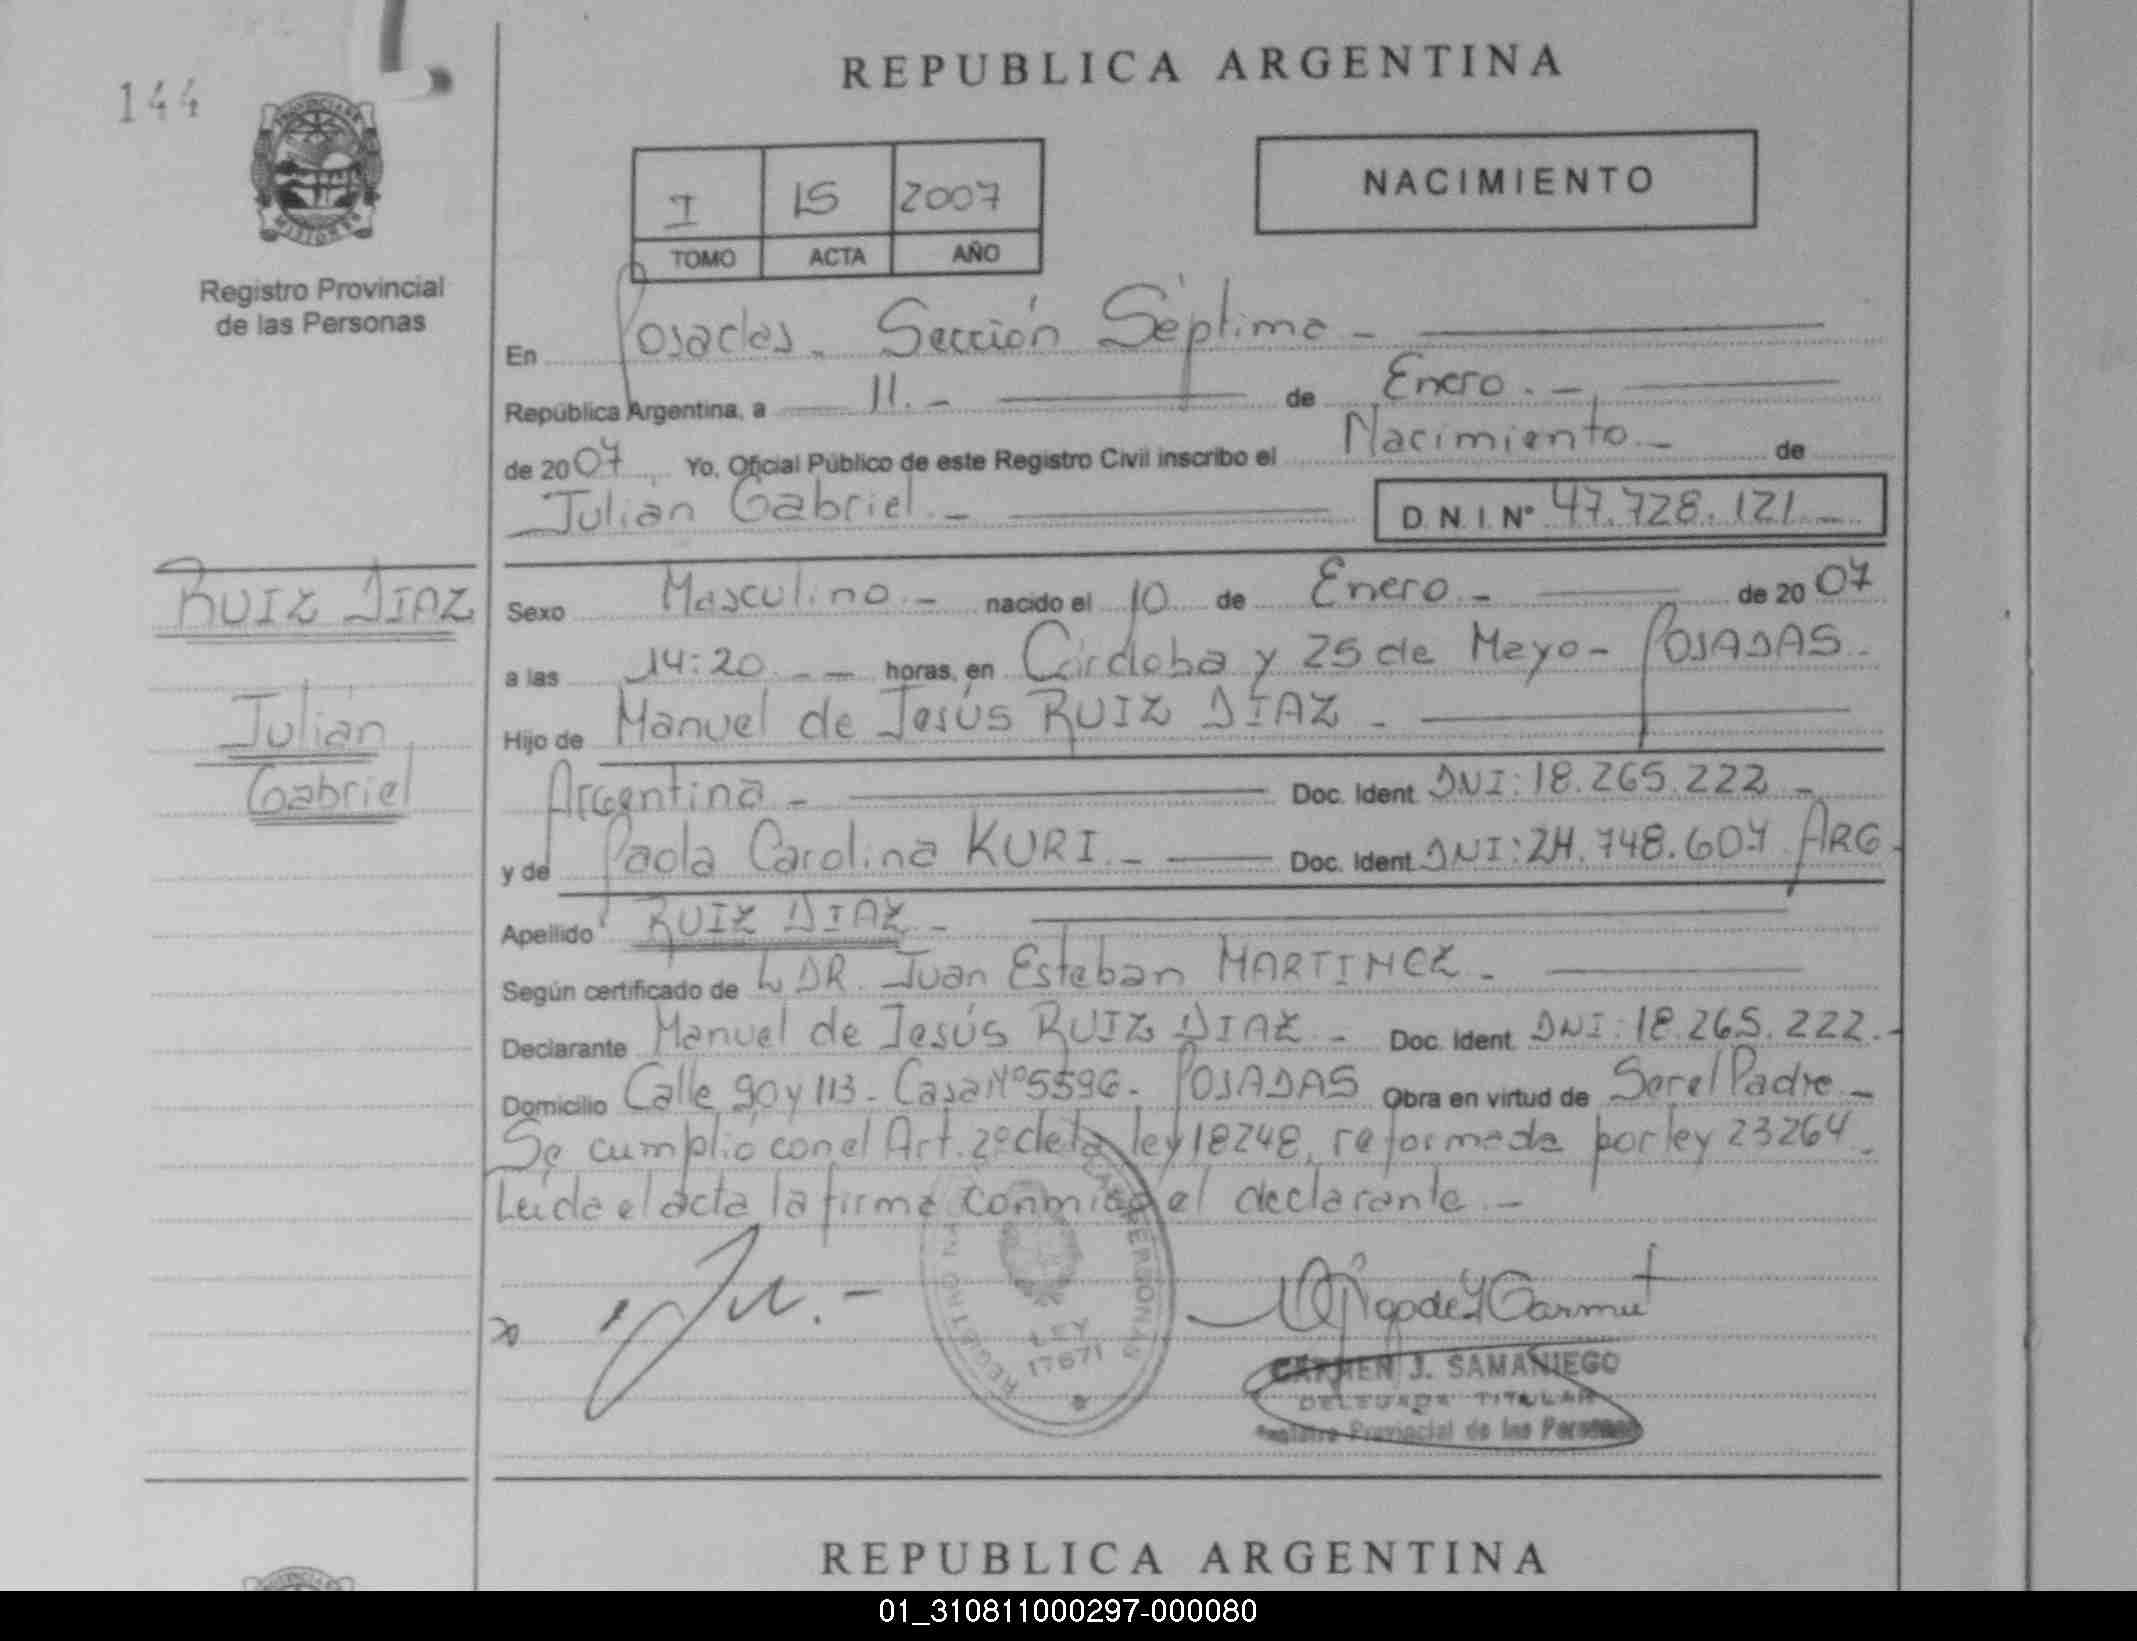 144
REPUBLICA ARGENTINA
PROVINCIA DE MISIONES
Registro Provincial
de las Personas
I 15 2007
TOMO ACTA AÑO
NACIMIENTO
En Posadas. Sección Séptima -
República Argentina, a 11. - de Enero. -
de 2007 Yo, Oficial Público de este Registro Civil inscribo el Nacimiento. - de
Julian Gabriel. - D.N.I. Nº 47.728.121. -
RUIZ DIAZ
Julián
Gabriel
Sexo Masculino. - nacido el 10 de Enero. - de 2007
a las 14:20. - - horas, en Córdoba y 25 de Mayo - POSADAS.
Hijo de Manuel de Jesús RUIZ DIAZ -
Argentina - Doc. Ident DNI: 18.265.222 -
y de Paola Carolina KURI. - Doc. Ident. DNI: 24.748.607 ARG.
Apellido RUIZ DIAZ. -
Según certificado de DR. Juan Esteban MARTINEZ -
Declarante Manuel de Jesús RUIZ DIAZ. - Doc. Ident. DNI: 18.265.222. -
Domicilio Calle 90 y 113 - Casa Nº 5596 - POSADAS Obra en virtud de Ser el Padre. -
Se cumplió con el Art. 2º de la ley 18248, reformada por ley 23264.
Leída el acta la firma conmigo el declarante. -
LEY
17671
CARMEN J. SAMANIEGO
DELEGADA TITULAR
Registro Provincial de las Personas
REPUBLICA ARGENTINA
01_310811000297-000080